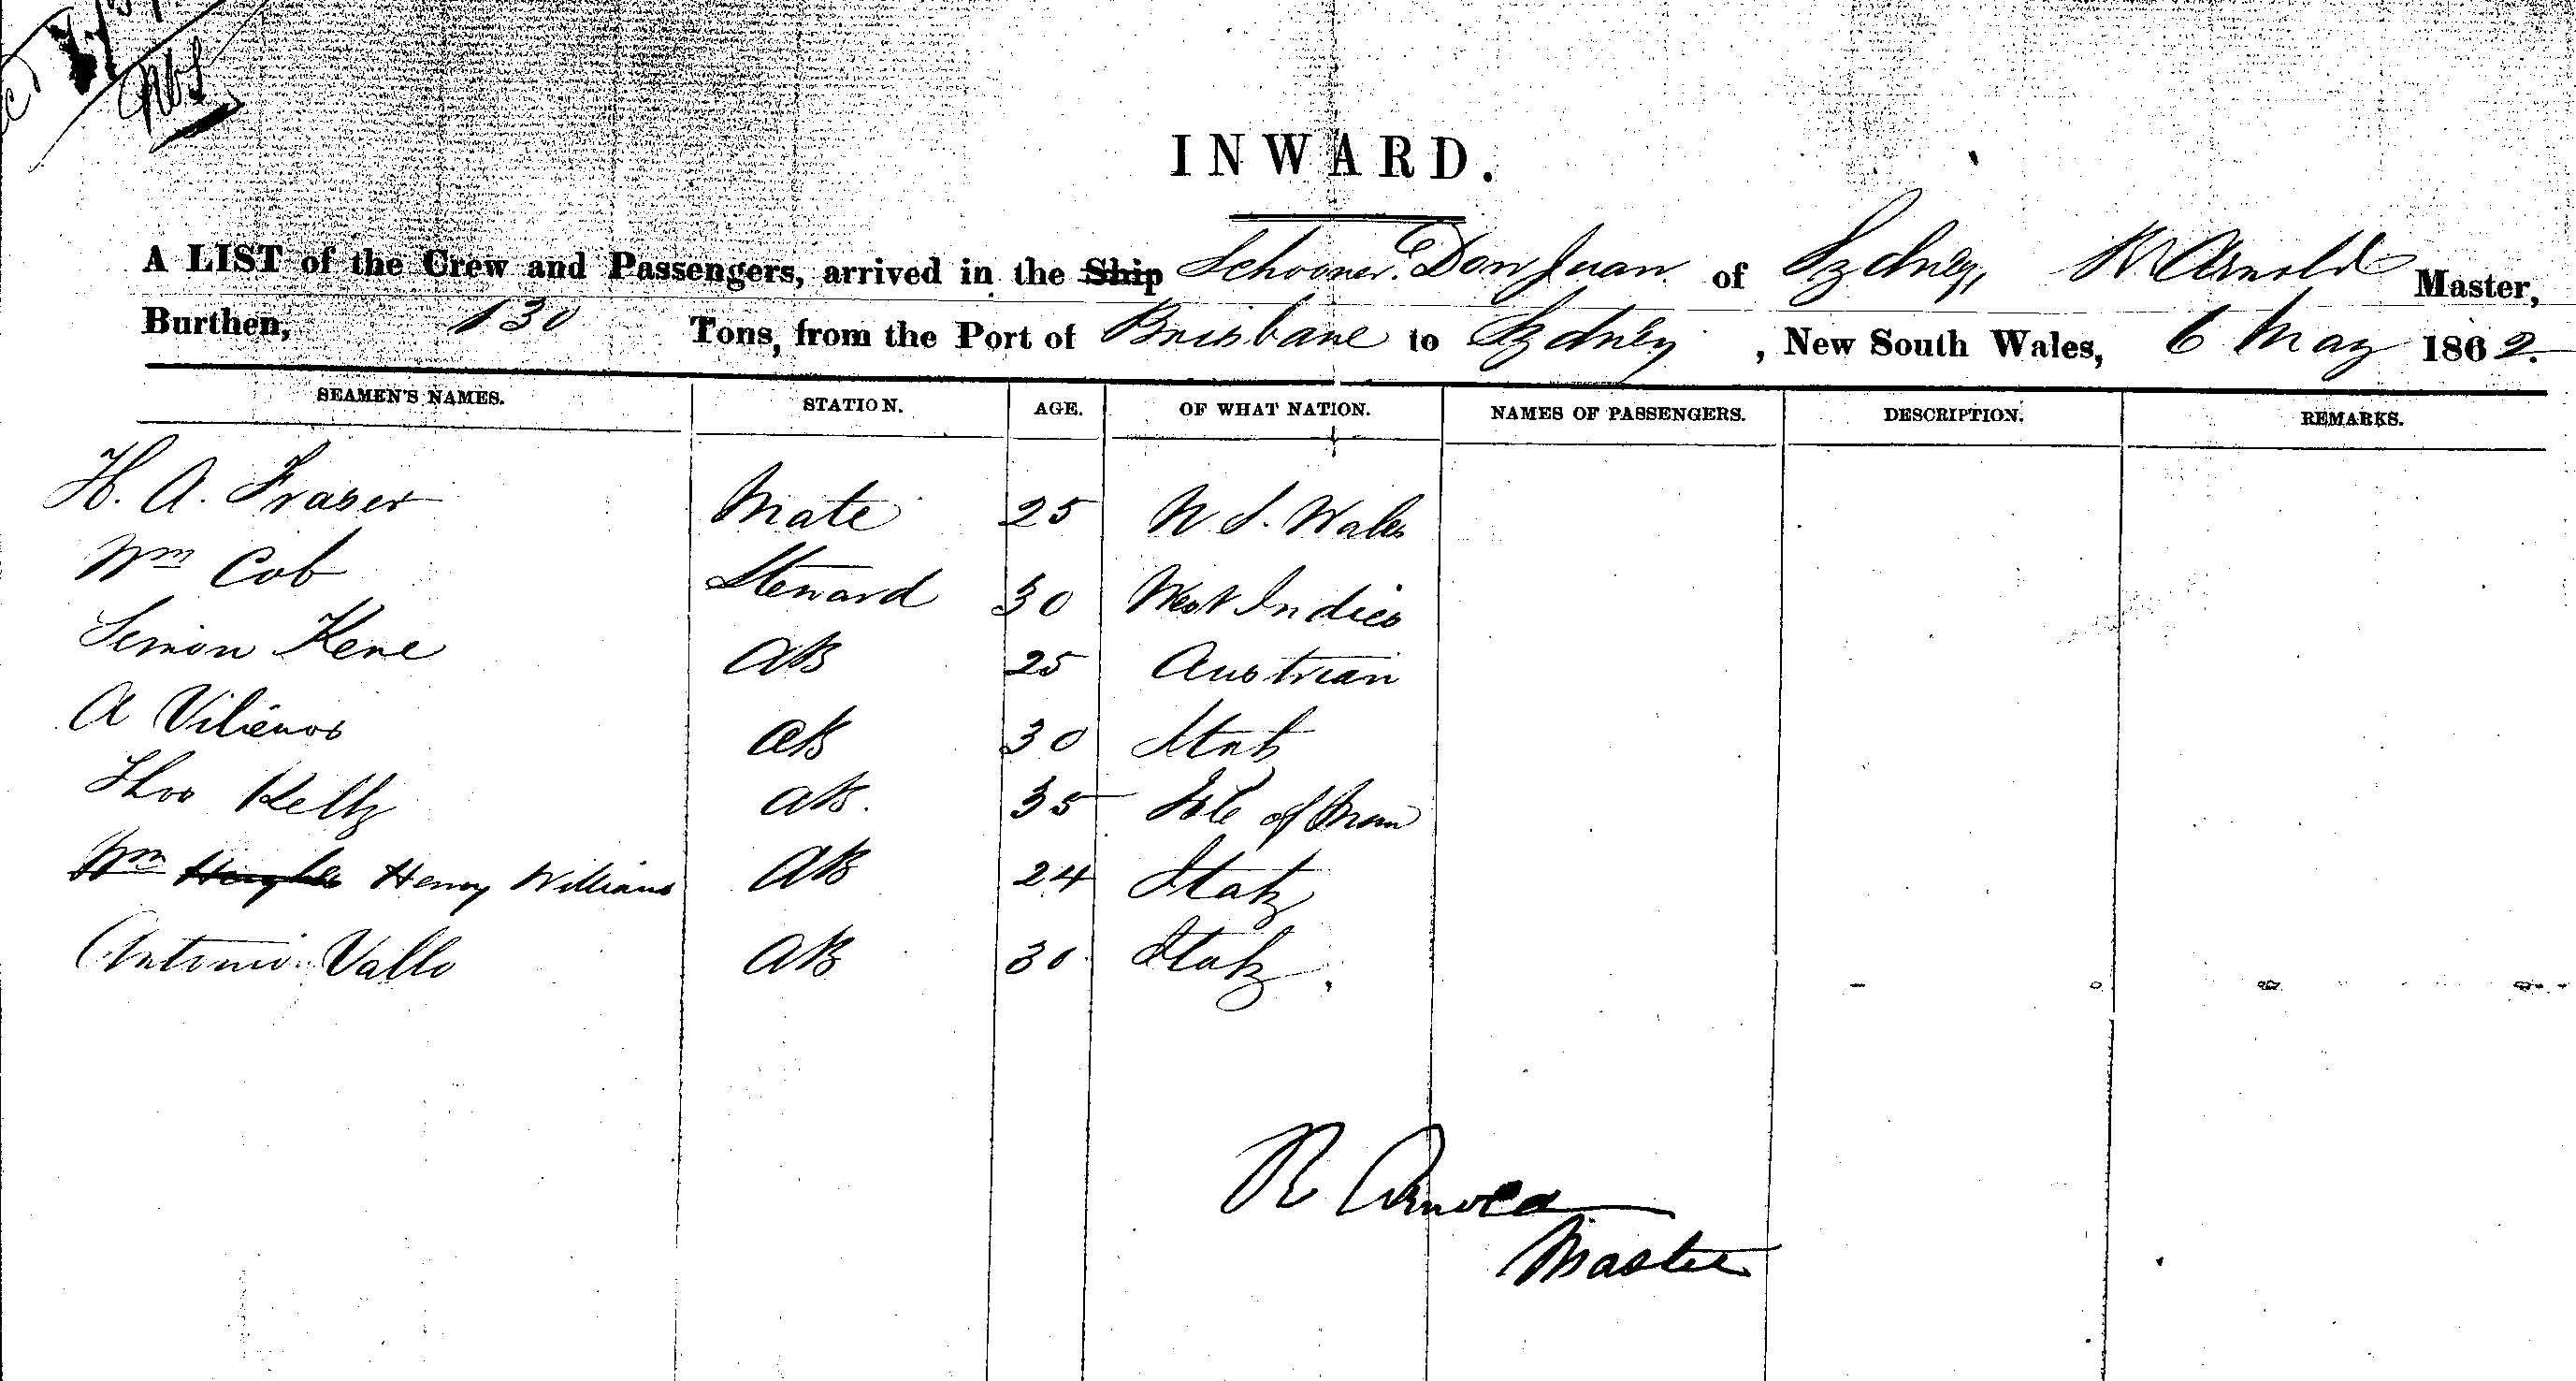 INWARD.
A LIST of the Crew and Passengers, arrived in the Ship Schooner Don Juan of Sydney, R Arnold Master,
Burthen, 130 Tons, from the Port of Brisbane to Sydney, New South Wales, 6 May 1862.
SEAMEN'S NAMES. STATION. AGE. OF WHAT NATION. NAMES OF PASSENGERS. DESCRIPTION. REMARKS.
H. A. Fraser Mate 25 N. S. Wales
Wm Cob Steward 30 West Indies
Simon Kene AB 25 Austrian
A AB 30 Italy
Thos Kelly AB. 35 Isle of Man
Wm Hughes Henry Williams AB 24 Italy
Antonio Vallo AB 30 Italy
R Arnold
Master